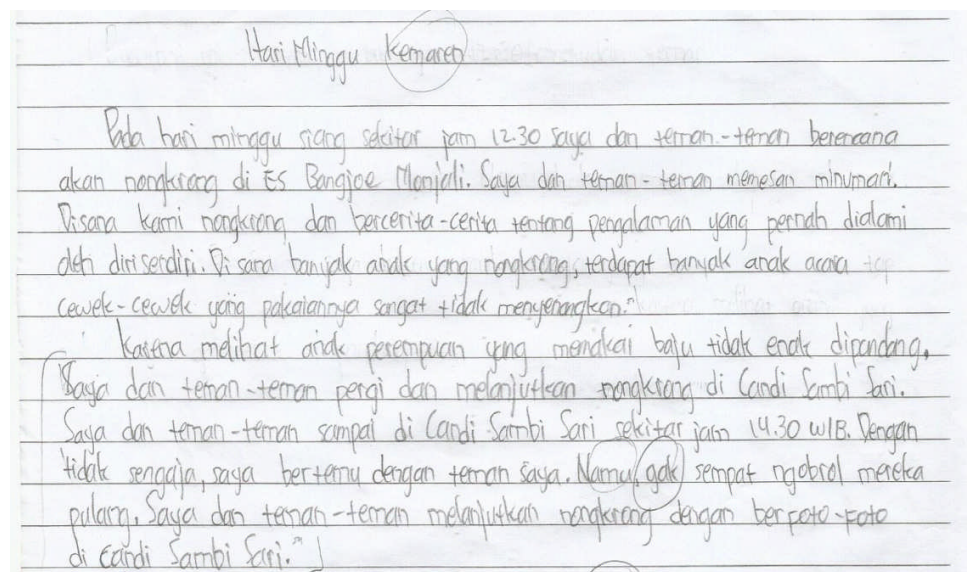 Hari Minggu Kemaren
Pada hari minggu siang sekitar jam 12.30 saya dan teman-teman berencana
akan nongkrong di ES Bangjoe Monjali. Saya dan teman-teman memesan minuman.
Disana kami nongkrong dan bercerita-cerita tentang pengalaman yang pernah dialami
oleh diri sendiri. Di sana banyak anak yang nongkrong, terdapat banyak anak acara
cewek-cewek yang pakaiannya sangat tidak menyenangkan."
Karena melihat anak perempuan yang memakai baju tidak enak dipandang,
Saya dan teman-teman pergi dan melanjutkan nongkrong di Candi Sambi Sari.
Saya dan teman-teman sampai di Candi Sambi Sari sekitar jam 14.30 WIB. Dengan
tidak sengaja, saya bertemu dengan teman saya. Namu, gak sempat ngobrol mereka
pulang, Saya dan teman-teman melanjutkan nongkrong dengan berfoto-foto
di Candi Sambi Sari."